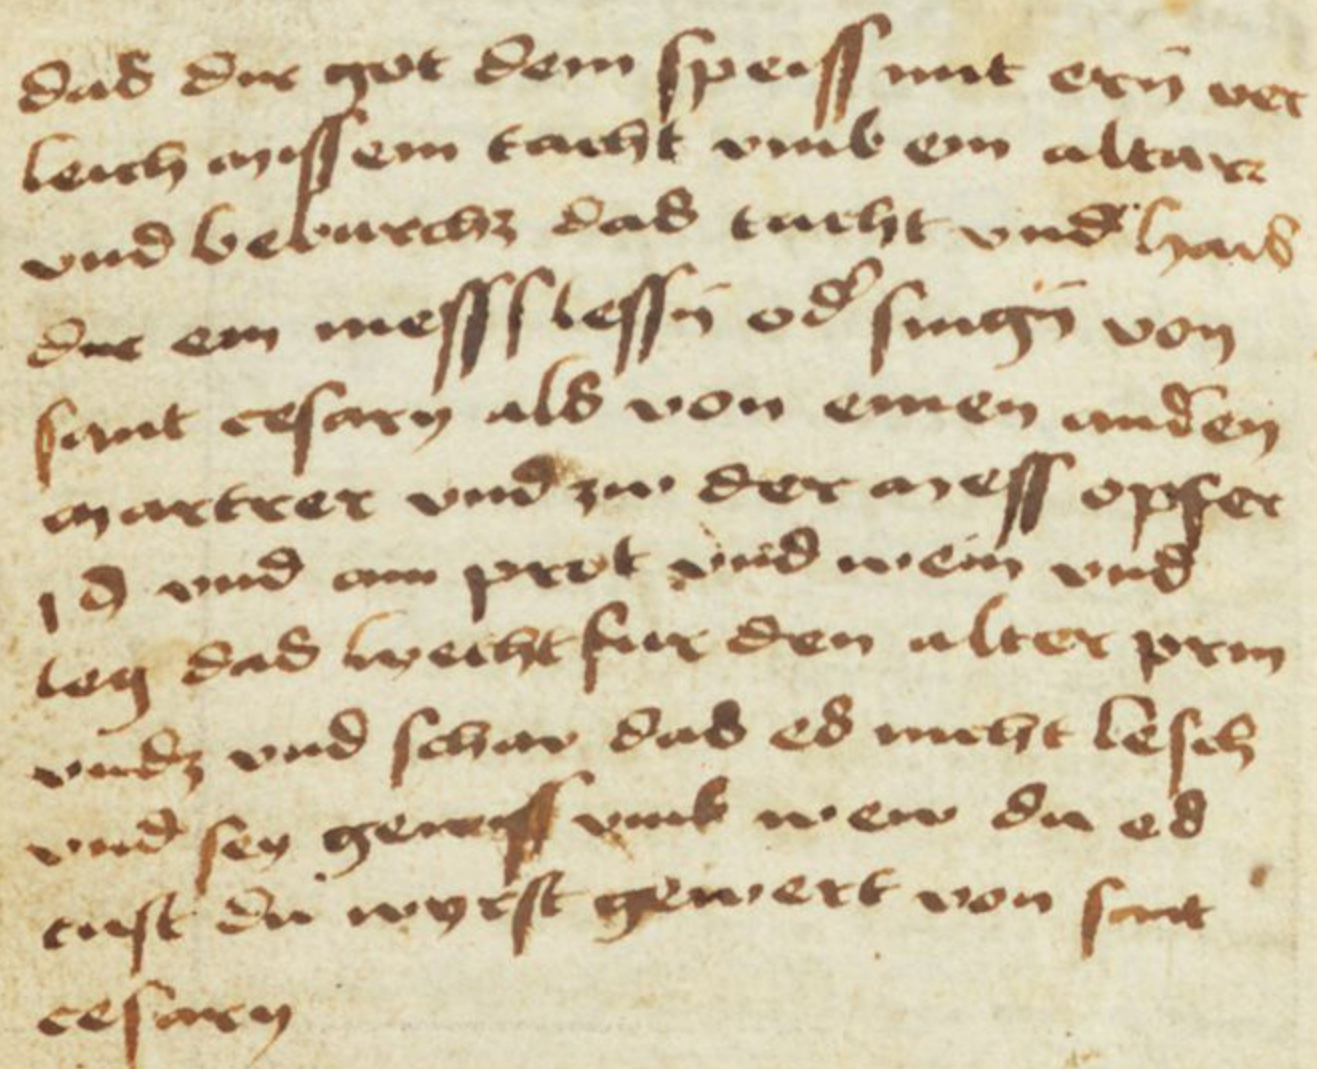 das dir got dein speiss mit ern̄ ver
leich miss ein tacht vmb ein altarr
vnd bebarchz das tacht vnd hais
dir ein mess lessn̄ od singn̄ von
sant cesary als von einen anden
martrer vnd zw der mess opfer
1 d vnd ain prot vnd wein vnd
leg das liecht fur den alter prin
vndz vnd schav das es nicht lesch
vnd sey gewiss vmb wew du es
tust du wyrst gewert von sant
cesary